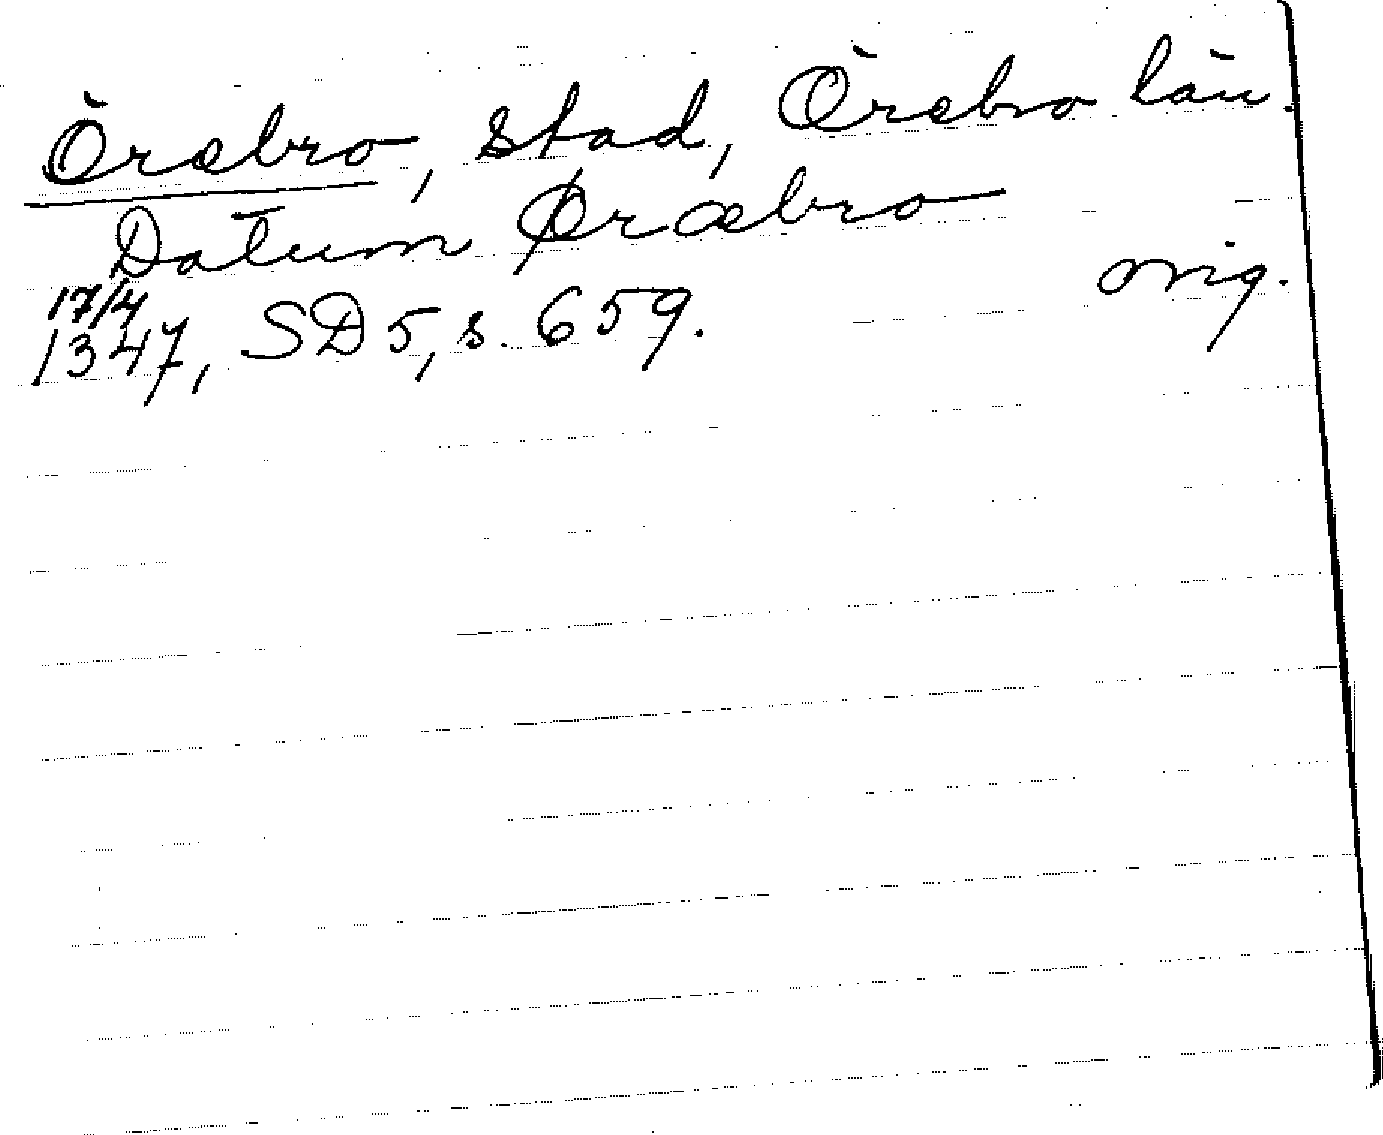 Örebro, stad, Örebro län.
Datum Øræbro
17/4
1347, SD 5, s. 659. orig.